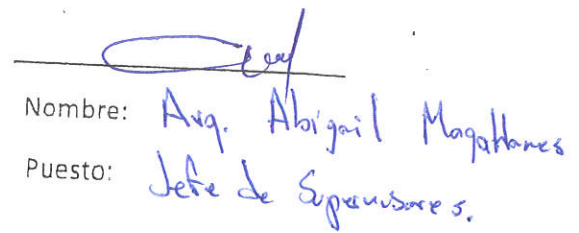 Nombre: Arq. Abigail Magallanes
Puesto: Jefe de Supervisores.